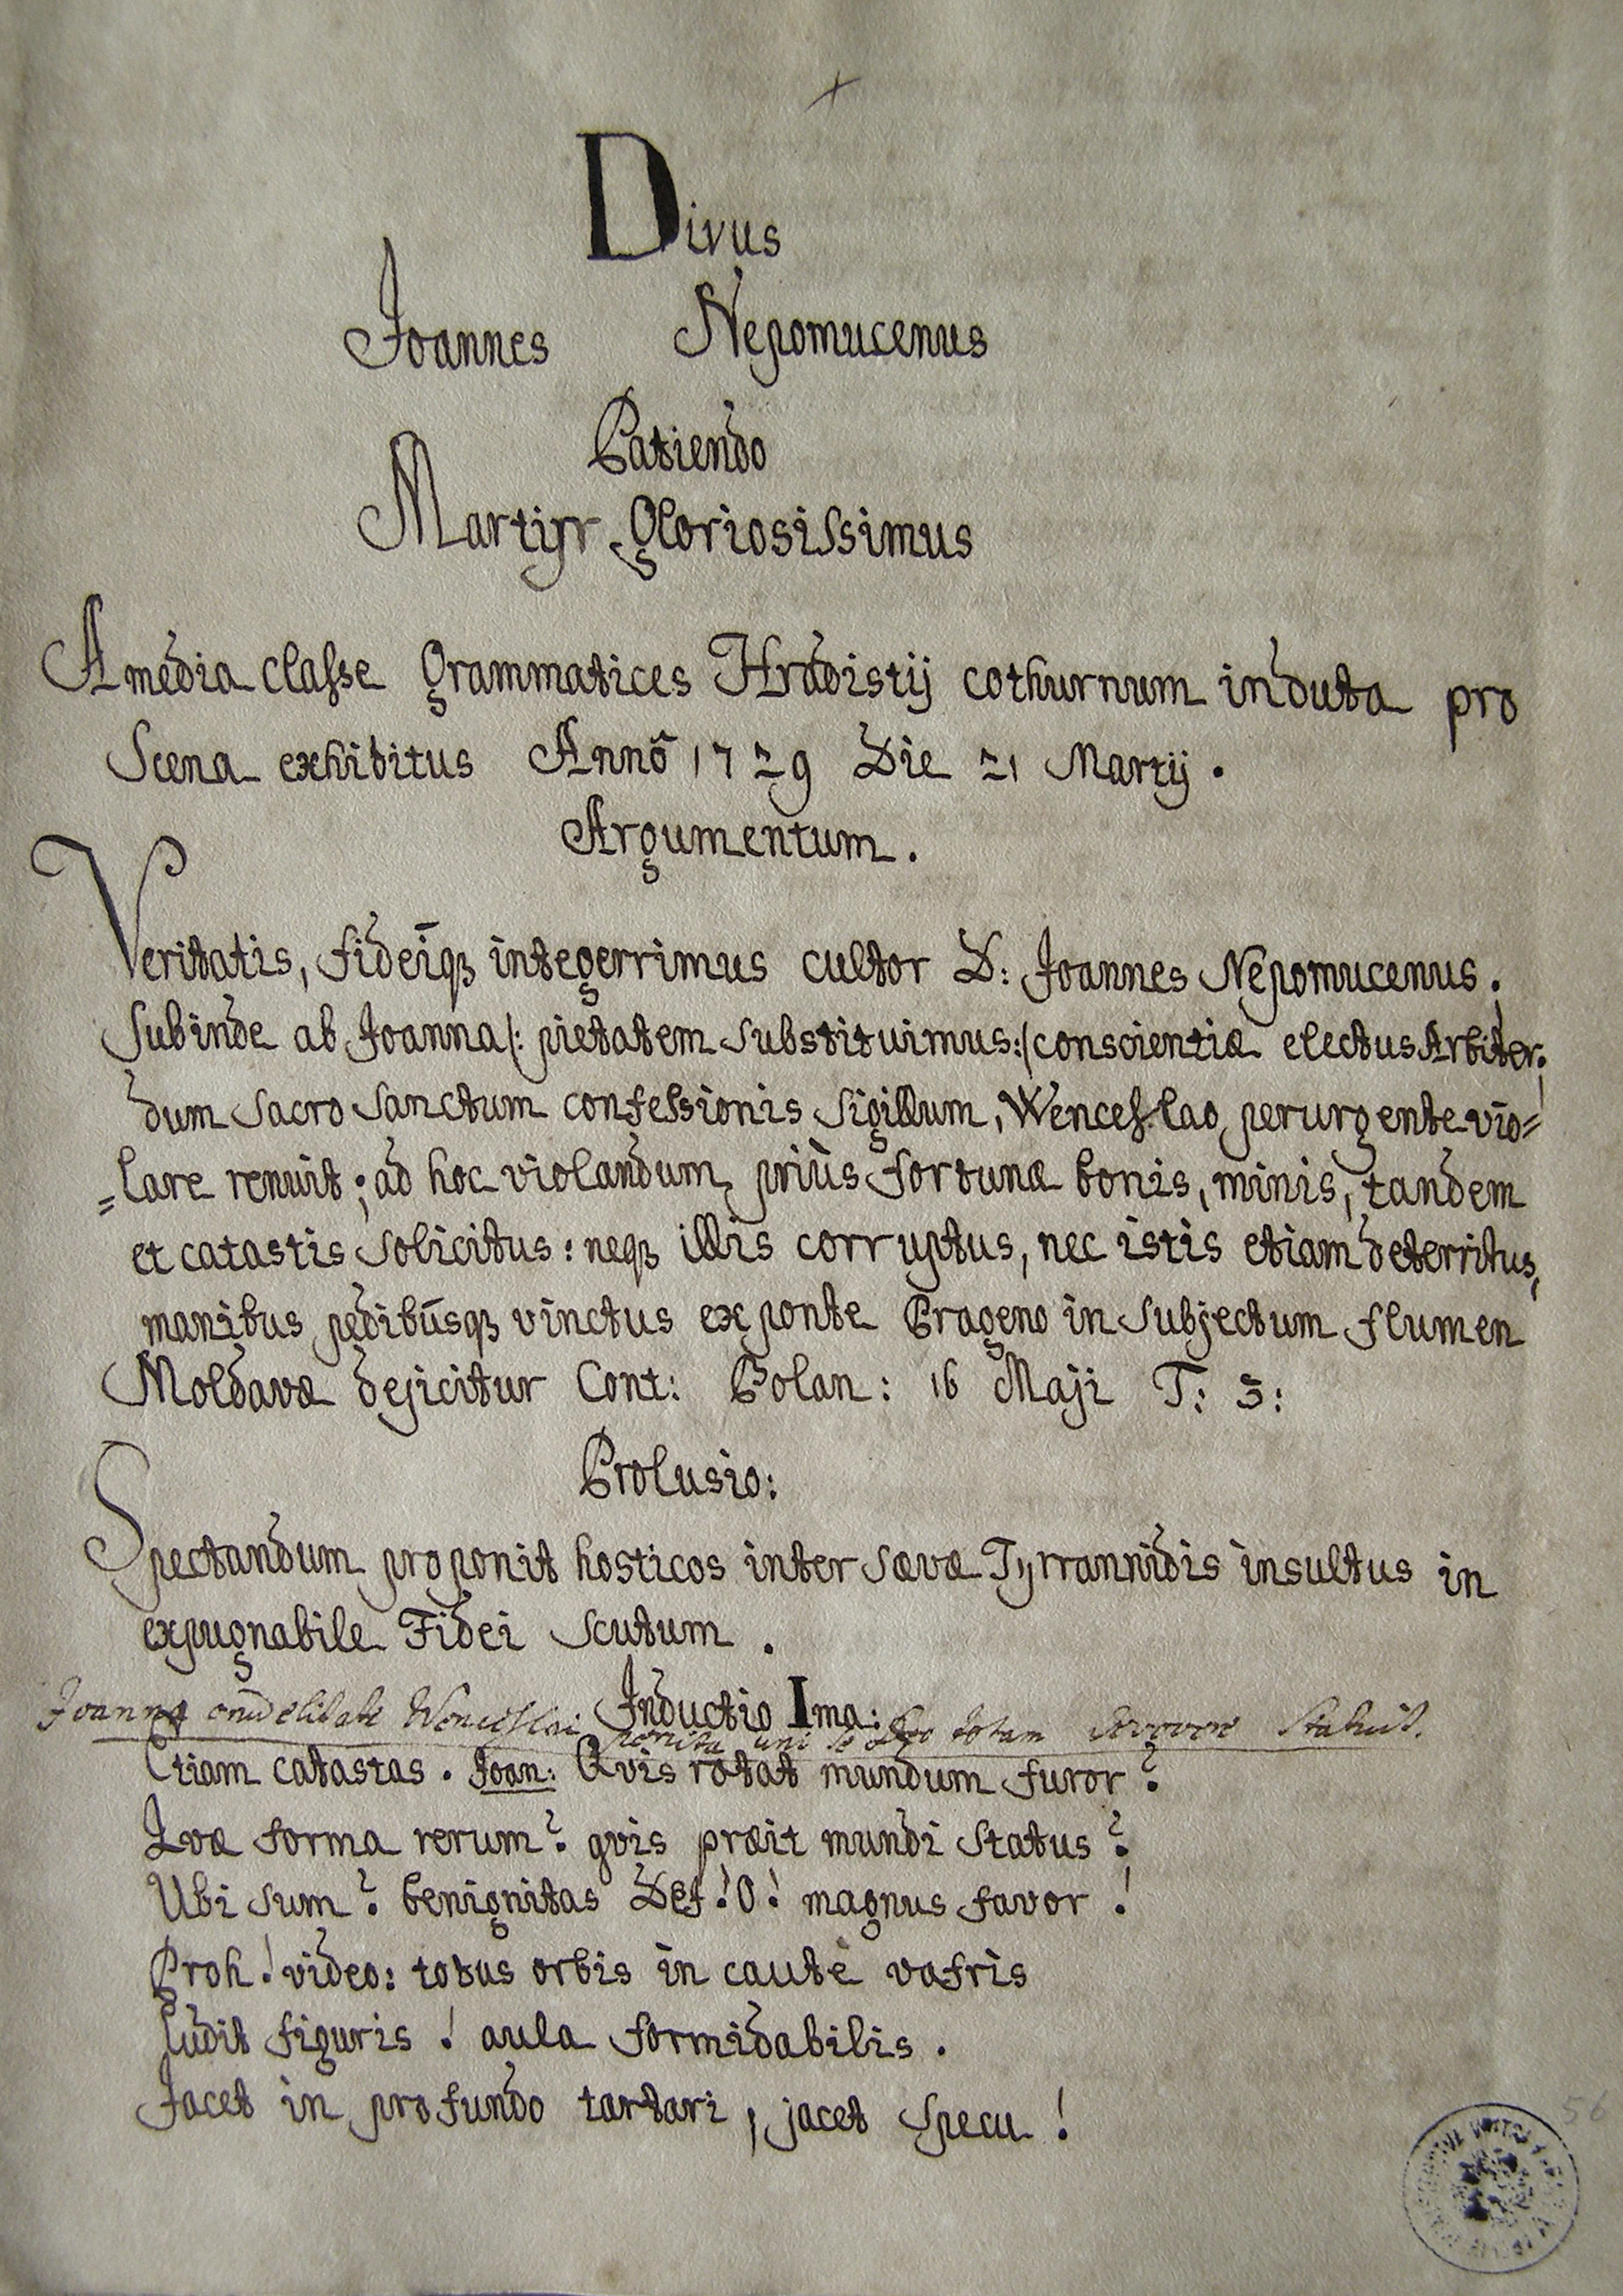 Divus
Joannes Nepomucenus
Patiendo
Martijr Gloriosissimus
A media classe Grammatices Hradistij cothurnum induta pro
Scena exhibitus Annô 1729 Die 21 Martij.
Argumentum.
Veritatis, fideīqꝫ integerrimus cultor D: Joannes Nepomucenus.
Subinde ab Joanna /: pietatem substituimus :/ conscientiæ electus Arbiter:
dum sacro sanctum confessionis sigillum, Wenceslao perurgente vio=
=lare renuit; ad hoc violandum priùs fortunæ bonis, minis, tandem
et catastis solicitus: neqꝫ illis corruptus, nec istis etiam deterritus,
manibus pedibúsqꝫ vinctus ex ponte Prageno in subjectum flumen
Moldavæ dejicitur Cont: Bolan: 16 Maji T: 3:
Prolusio:
Spectandum proponit hosticos inter sævæ Tijrannidis insultus in
expugnabile Fidei scutum.
Inductio Ima:
Joanna crudelitate Wenceslai perita uni se Deo totam devovere statuit.
Etiam catastas. Joan: Qvis rotat mundum furor?
Qvæ forma rerum? qvis præit mundi status?
Ubi sum? benignitas Dei! O! magnus favor!
Proh! video: totus orbis in cautè vafris
Ludit figuris! aula formidabilis.
Jacet in profundo tartari, jacet specu!
56